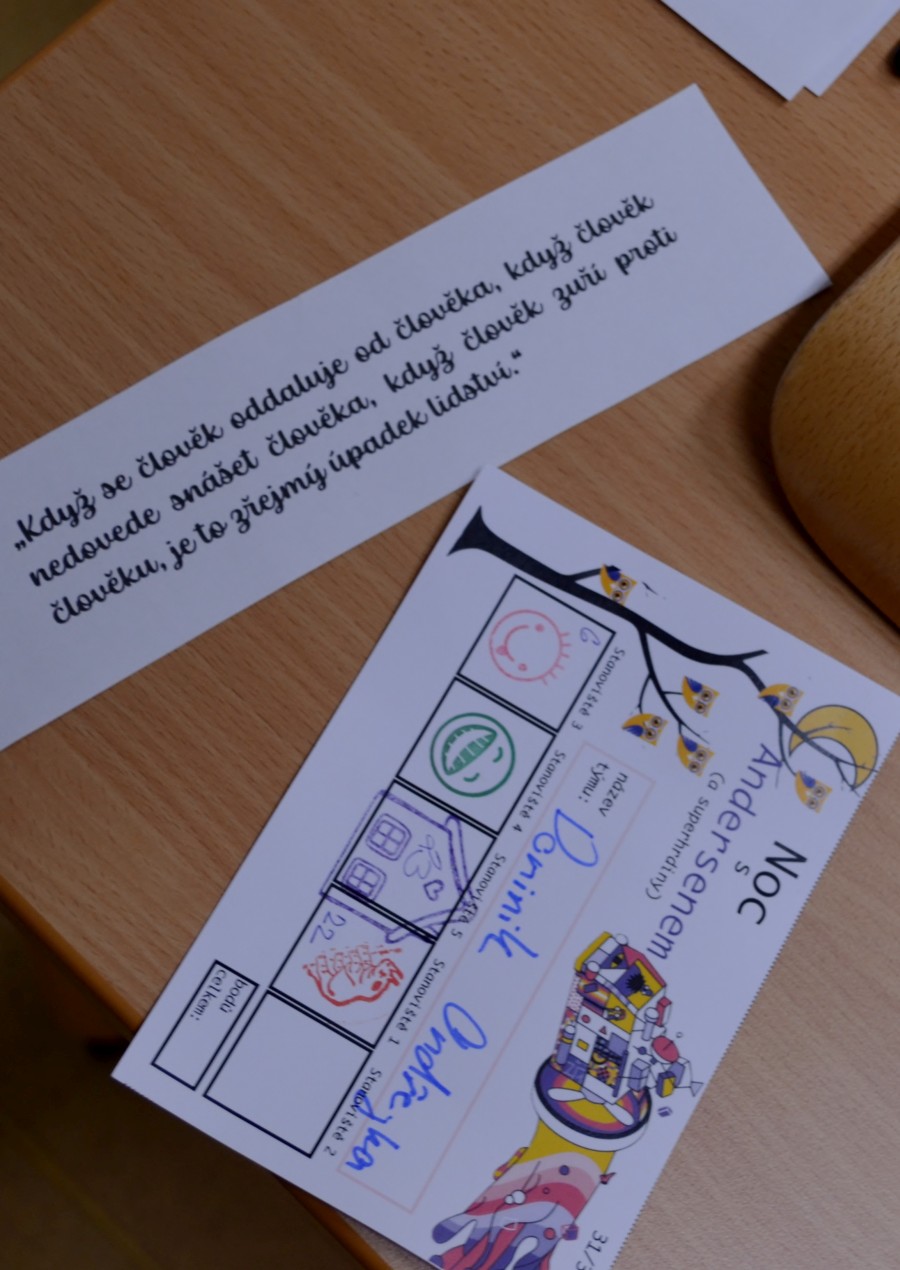 „Když se člověk oddaluje od člověka, když člověk
nedovede snášet člověka, když člověk zuří proti
člověku, je to zřejmý úpadek lidství.“
Noc
s
Andersenem
(a superhrdiny)
název
týmu:
Dominik Ondřejka
Stanoviště 3
Stanoviště 4
Stanoviště 5
Stanoviště 1
Stanoviště 2
6
23
22
bodů
celkem: